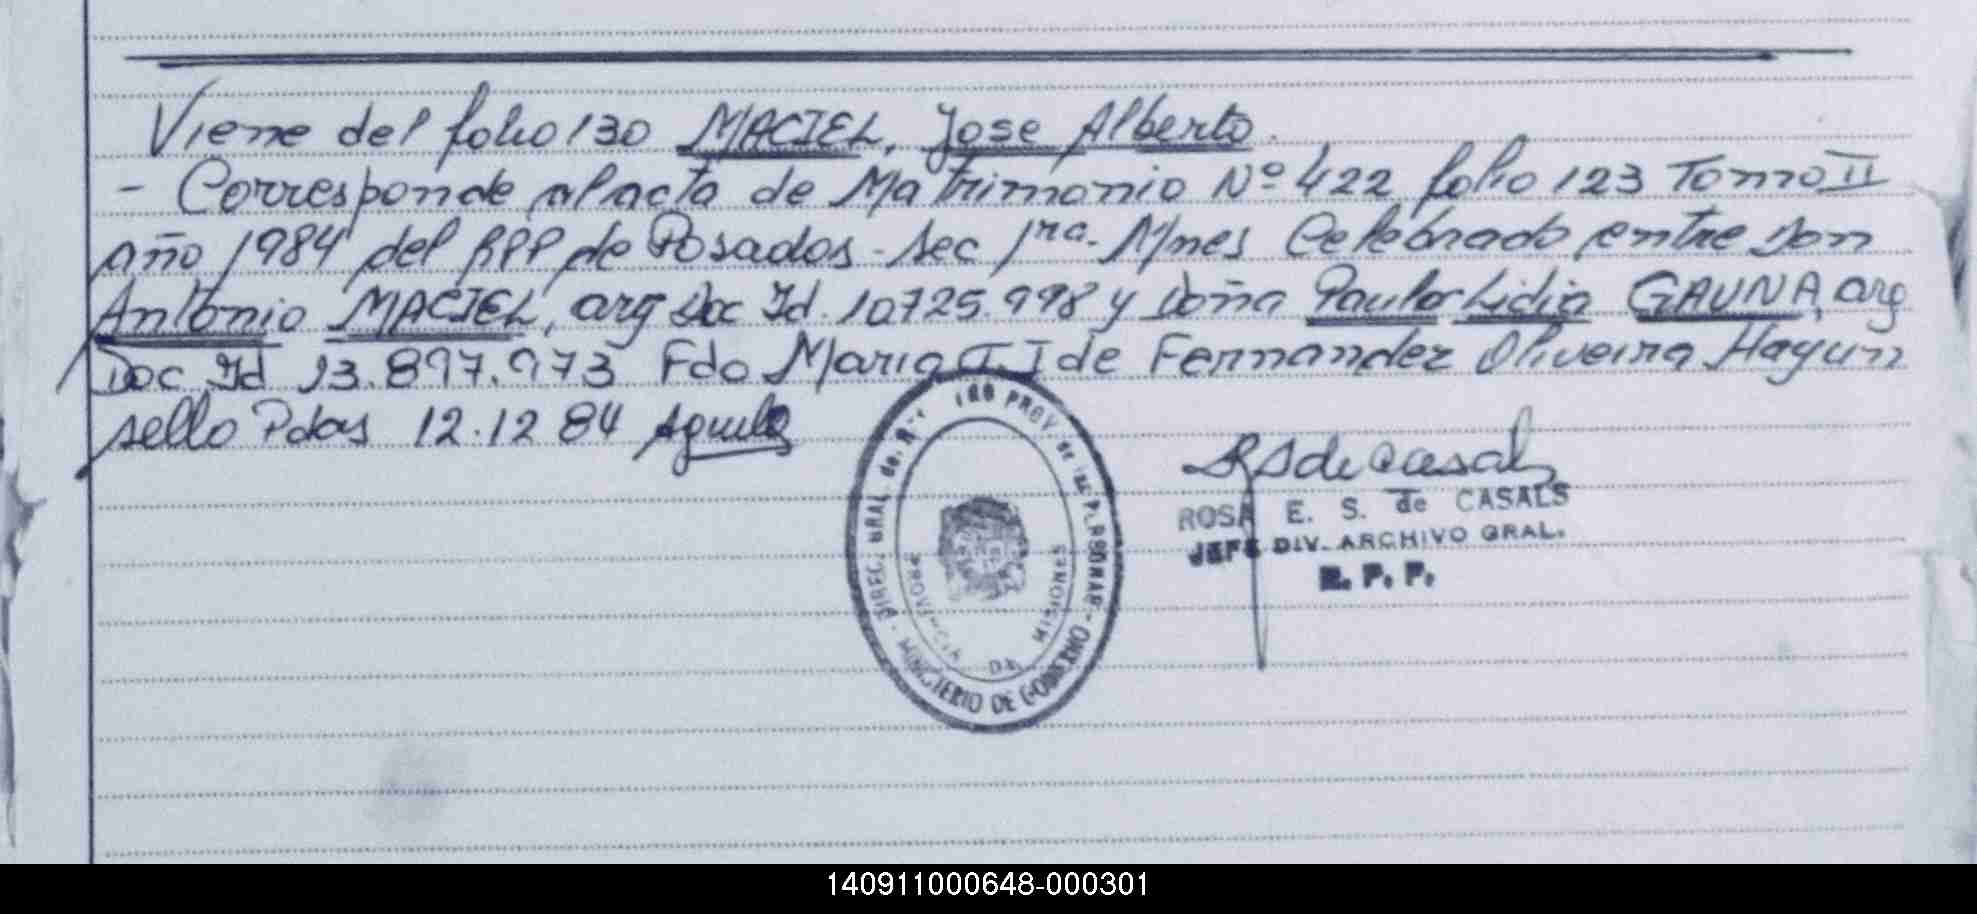 Viene del folio 130 MACIEL, Jose Alberto.
- Corresponde al acta de Matrimonio Nº 422 folio 123 Tomo II
año 1984 del RPP de Posadas - sec 1ra. Mnes Celebrado entre don
Antonio MACIEL, arg Doc Id. 10725.998 y doña Paula Lidia GAUNA, arg
Doc Id 13.897.973 Fdo Maria T. I de Fernandez Oliveira Hayun
sello Pdas 12.12 84
DIREC. GRAL. del PROV de las PERSONAS - MINISTERIO DE GOBIERNO
PROVINCIA DE MISIONES
RSdeCasals
ROSA E. S. de CASALS
JEFE DIV. ARCHIVO GRAL.
R. P. P.
140911000648-000301